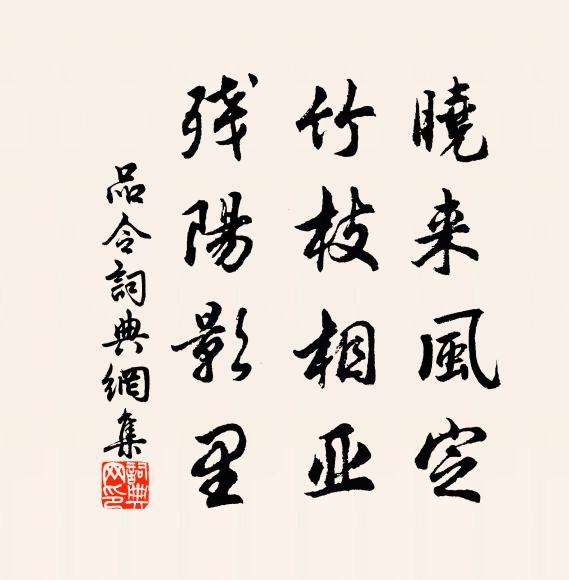 曉来風定
竹枝相亚
残陽影里
品令詞典網集
詞典
网印